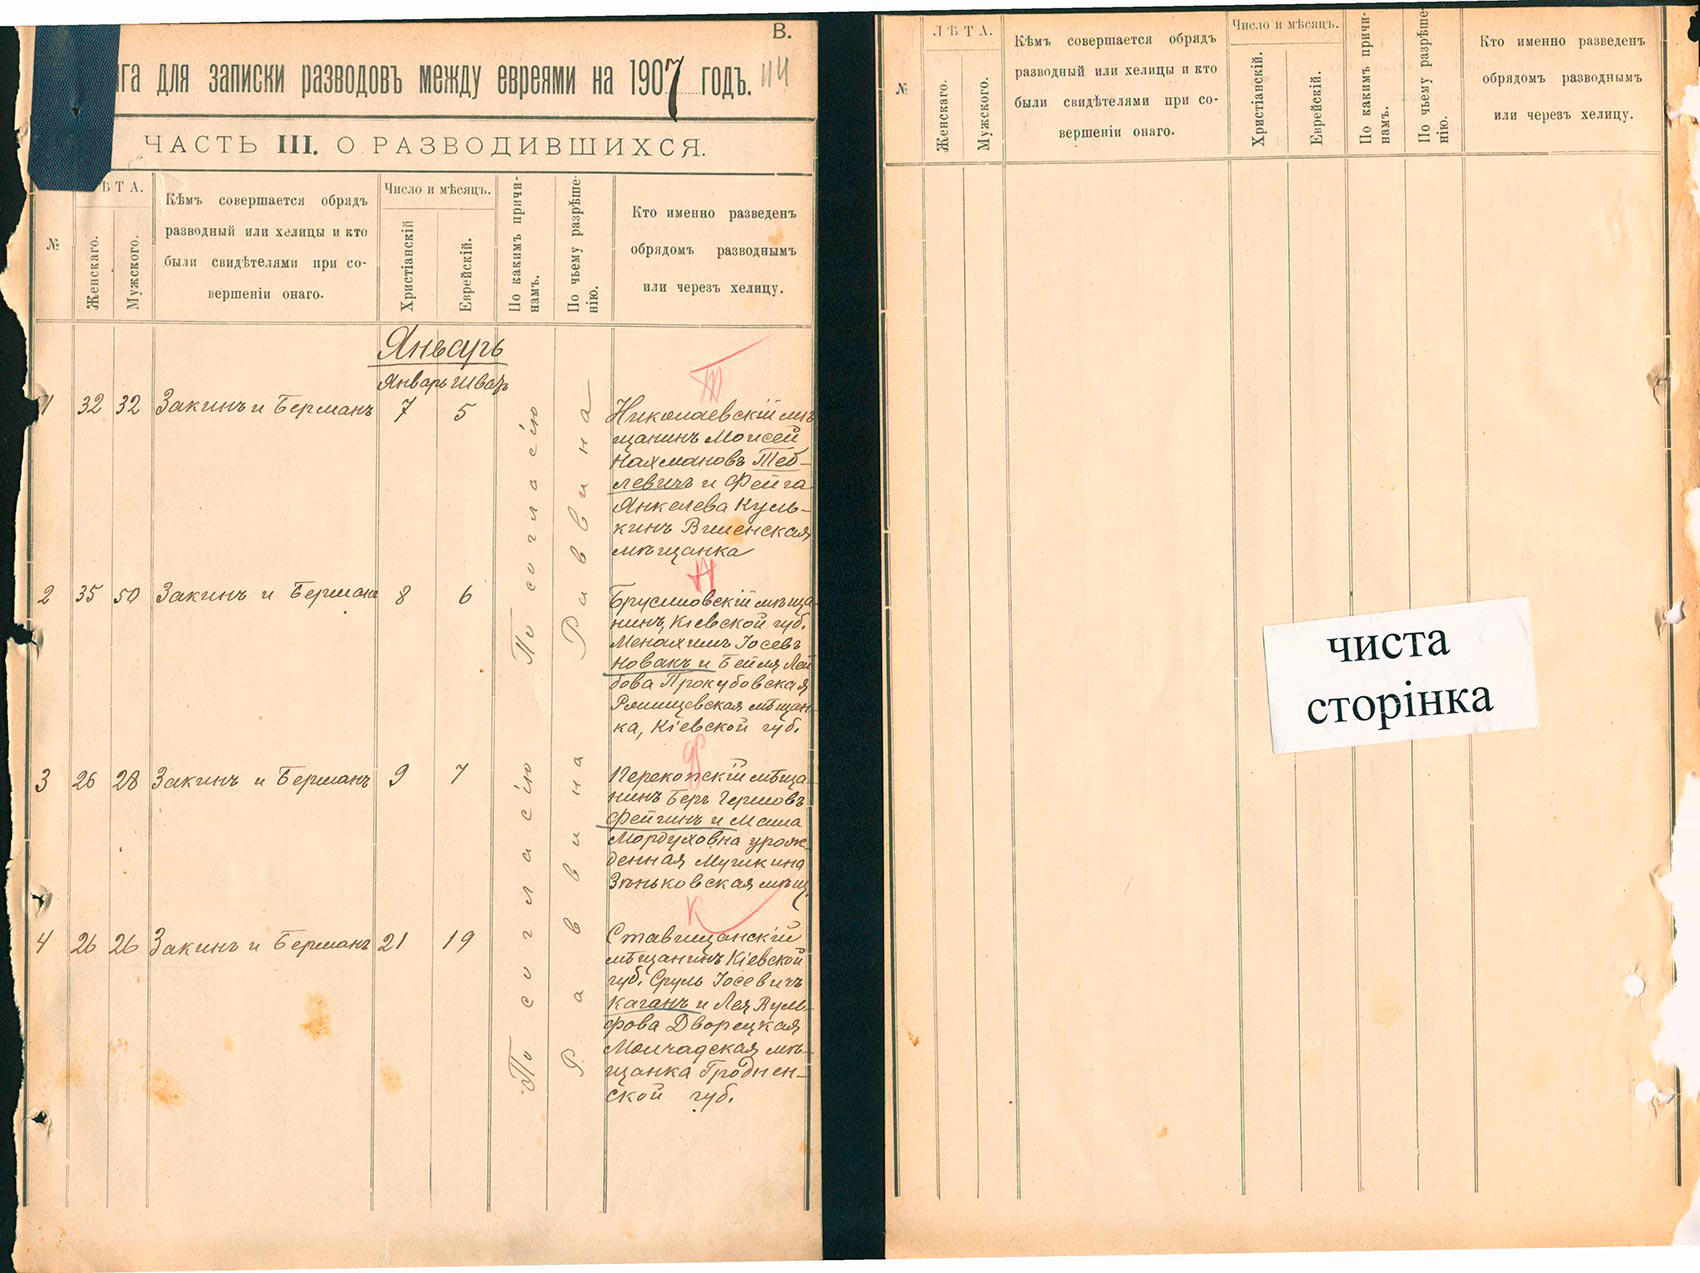 В.
га для записки разводовъ между евреями на 1907 годъ.
ЧАСТЬ III. О РАЗВОДИВШИХСЯ.
№
ѢТА.
Женскаго.
Мужского.
Кѣмъ совершается обрядъ
разводный или хелицы и кто
были свидѣтелями при со-
вершеніи онаго.
Число и мѣсяцъ.
Христіанскій
Еврейскій.
По какимъ причи-
намъ.
По чьему разрѣше-
нію.
Кто именно разведенъ
обрядомъ разводнымъ
или черезъ хелицу.
Январь
Январь Шватъ
1 32 32 Закинъ и Берманъ 7 5
По согласію
Раввина
Николаевскій мѣ-
щанинъ Моисей
Нахмановъ Теб-
левичъ и Фейга
Янкелева Куль-
кинъ Виленская
мѣщанка
2 35 50 Закинъ и Берманъ 8 6
Брусиловскій мѣща-
нинъ, Кіевской губ.
Менахимъ Іосевъ
Новакъ и Бейля Лей
бова Прокубовская
мѣщан-
ка, Кіевской губ.
3 26 28 Закинъ и Берманъ 9 7
По согласію
Раввина
Перекопскій мѣща-
нинъ Беръ Гершовъ
Фейгинъ и Маша
Мордуховна урож-
денная Мушкина
Зѣньковская мѣщ.
4 26 26 Закинъ и Берманъ 21 19
Ставищанскій
мѣщанинъ Кіевской
губ. Сруль Іосевичъ
Каганъ и Лея Вуль-
фова Дворецкая
Молчадская мѣ-
щанка Гроднен-
ской губ.
№
ЛѢТА.
Женскаго.
Мужского.
Кѣмъ совершается обрядъ
разводный или хелицы и кто
были свидѣтелями при со-
вершеніи онаго.
Число и мѣсяцъ.
Христіанскій.
Еврейскій.
По какимъ причи-
намъ.
По чьему разрѣше-
нію.
Кто именно разведенъ
обрядомъ разводнымъ
или черезъ хелицу.
чиста
сторінка